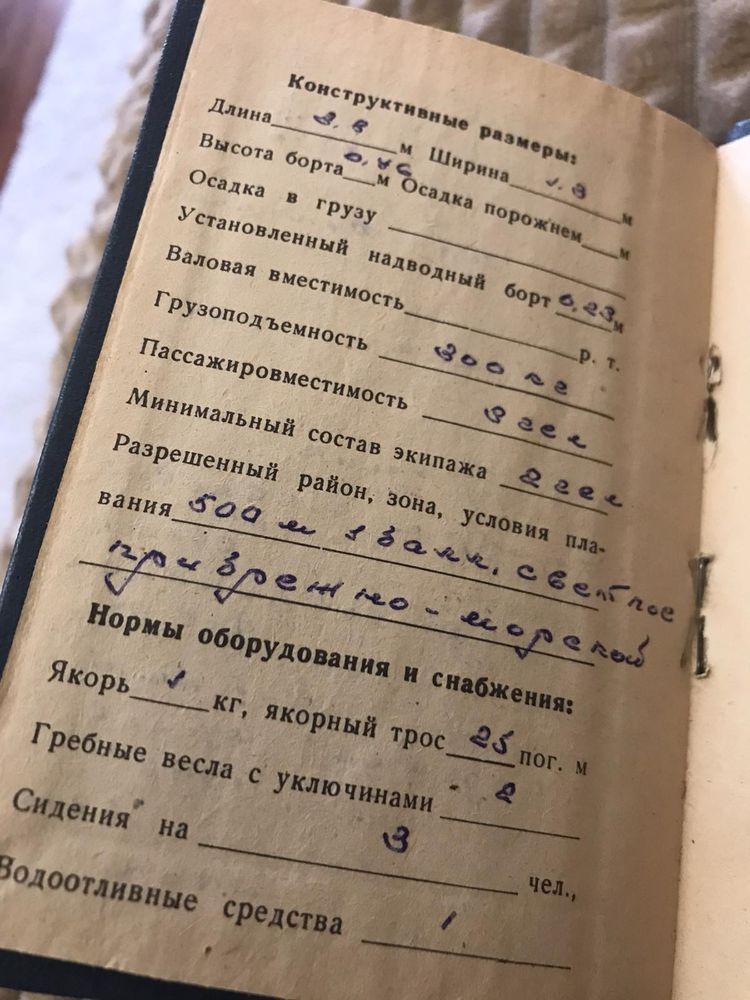 Конструктивные размеры:
Длина 3,3 м Ширина 1.3 м
Высота борта 0,46 м Осадка порожнем м
Осадка в грузу
Установленный надводный борт 0,23 м
Валовая вместимость р. т.
Грузоподъемность 300 кг
Пассажировместимость 3 чел
Минимальный состав экипажа 2 чел
Разрешенный район, зона, условия пла-
вания 500 м 1 балл, светлое
прибрежно-морской
Нормы оборудования и снабжения:
Якорь 1 кг, якорный трос 25 пог. м
Гребные весла с уключинами - 2
Сидения на 3 чел.,
Водоотливные средства 1